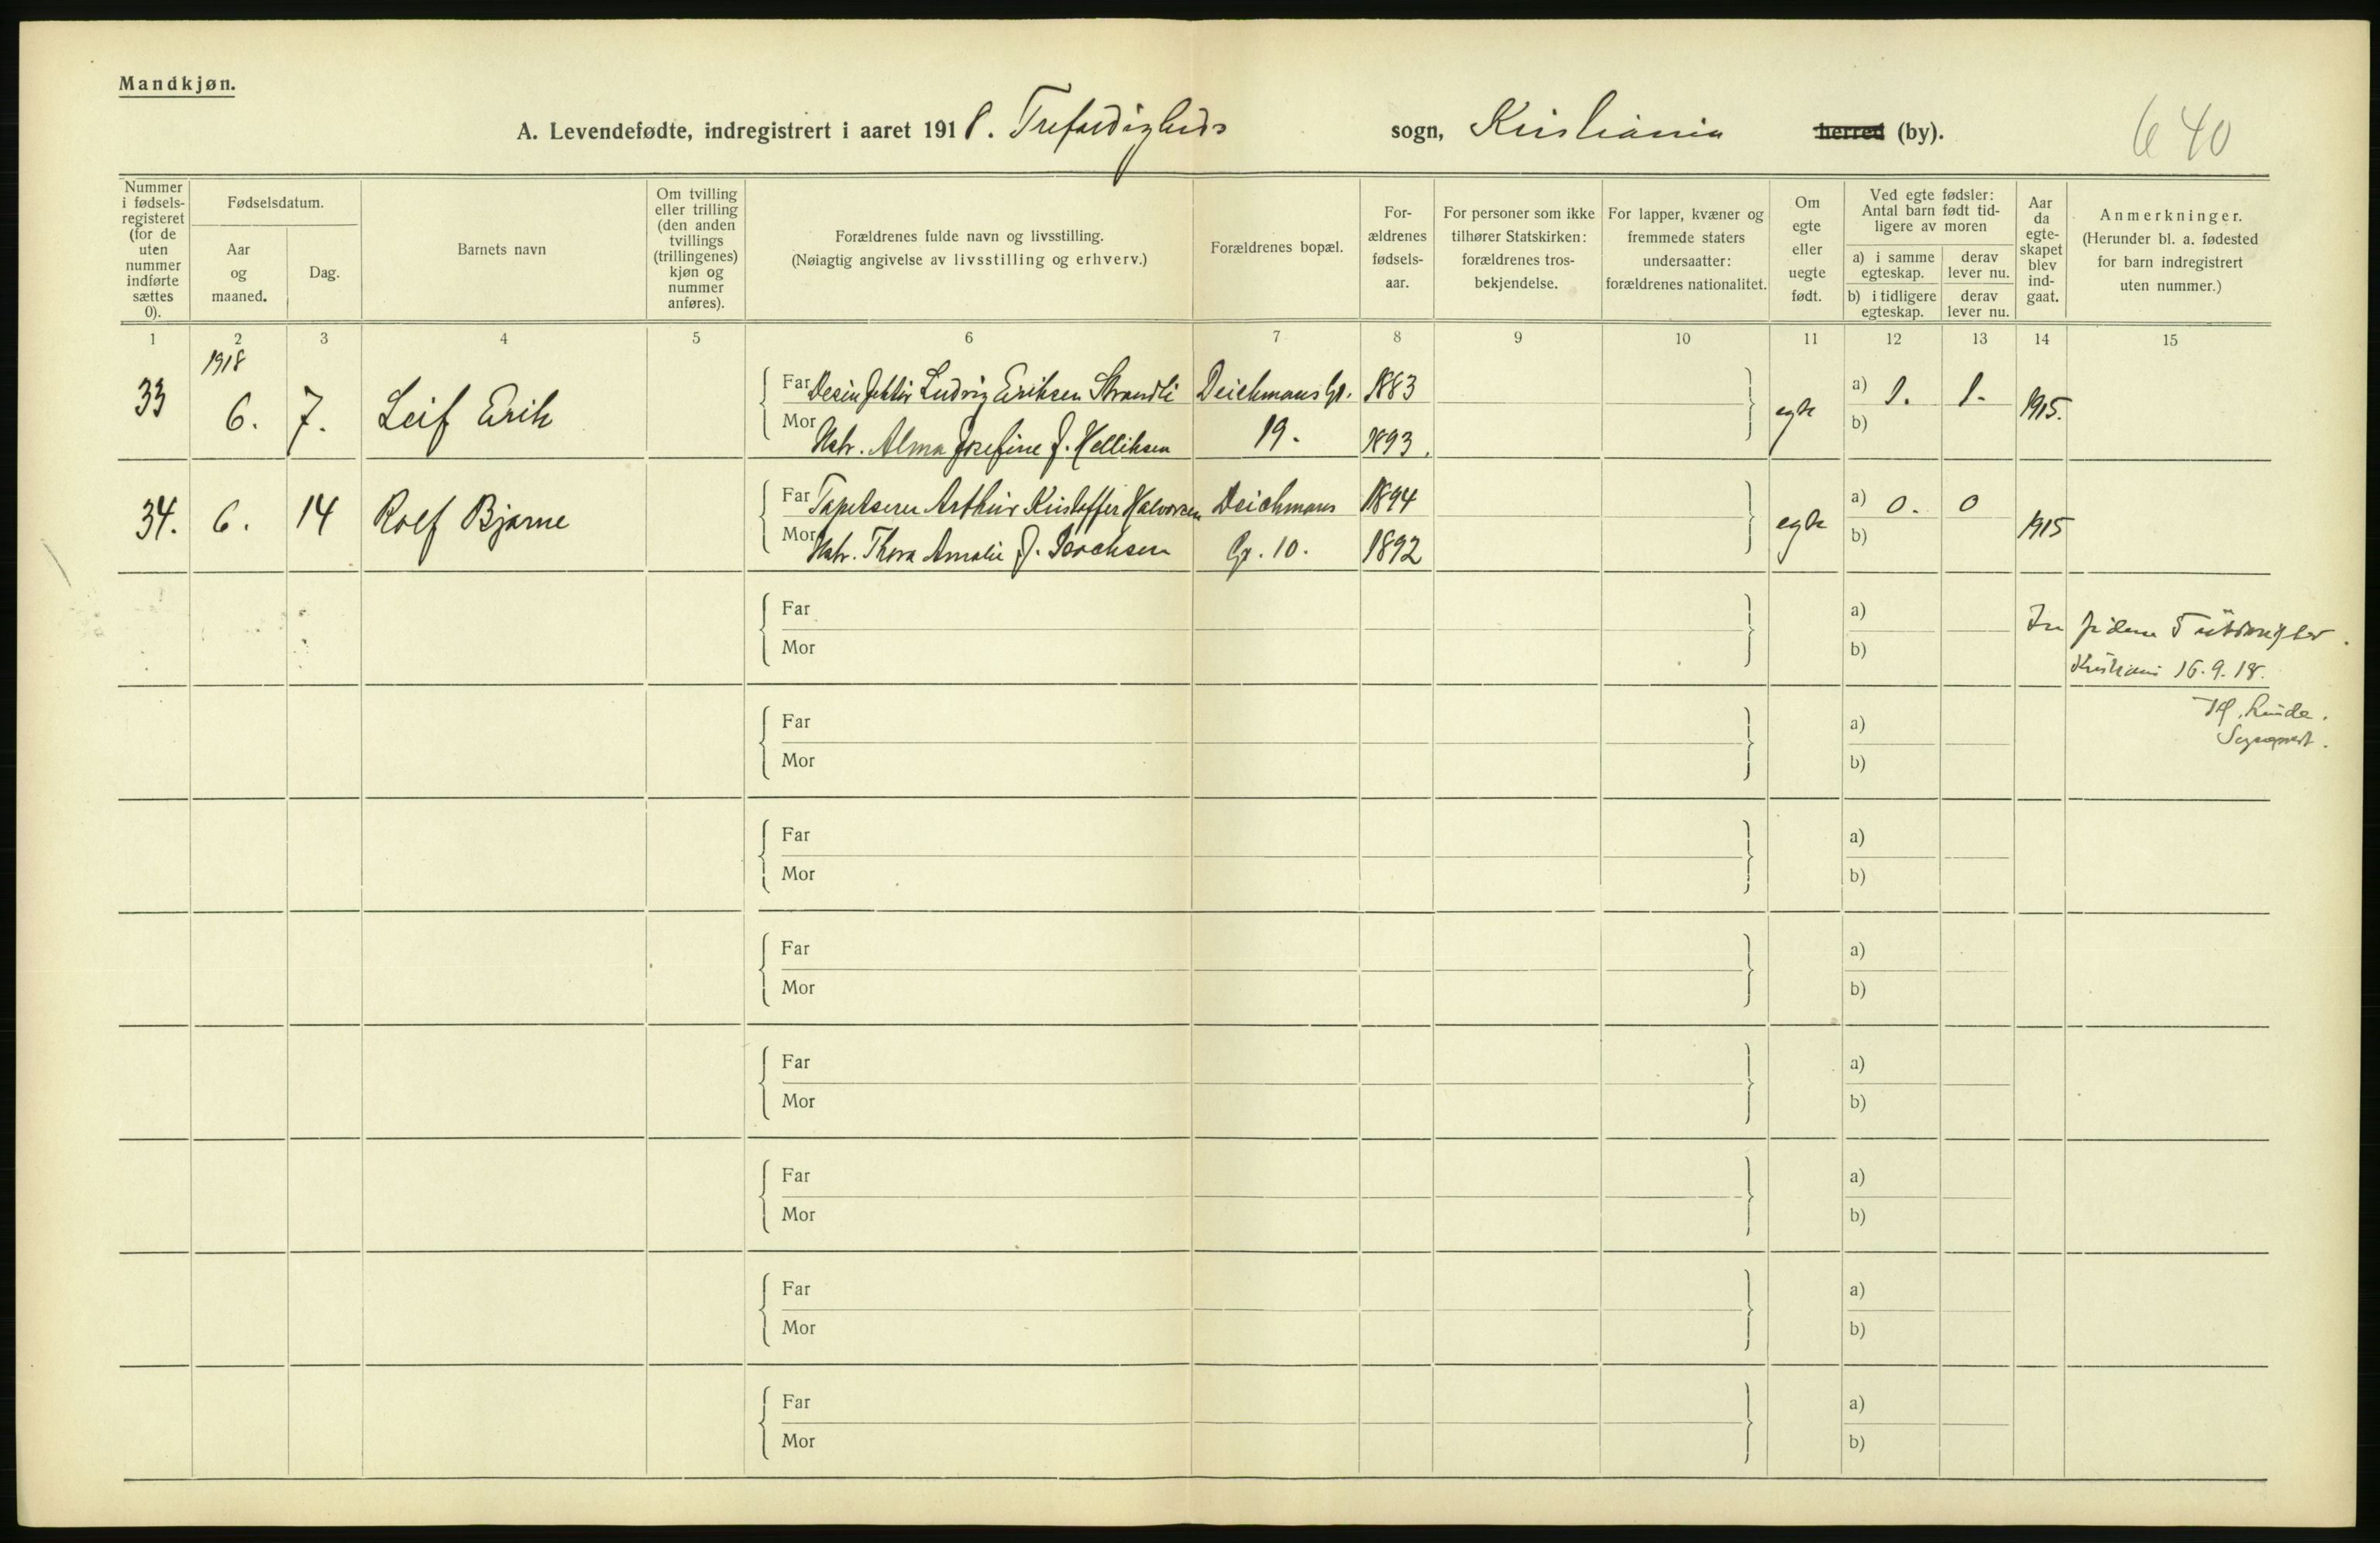 Mandkjøn.
A. Levendefødte, indregistrert i aaret 1918. Trefoldigheds sogn, Kristiania herred (by).
640
Nummer i fødsels-registeret (for de uten nummer indførte sættes 0).
Fødselsdatum.
Aar og maaned.
Dag.
Barnets navn
Om tvilling eller trilling (den anden tvillings (trillingenes) kjøn og nummer anføres).
Forældrenes fulde navn og livsstilling.
(Nøiagtig angivelse av livsstilling og erhverv.)
Forældrenes bopæl.
For-ældrenes fødsels-aar.
For personer som ikke tilhører Statskirken: forældrenes tros-bekjendelse.
For lapper, kvæner og fremmede staters undersaatter: forældrenes nationalitet.
Om egte eller uegte født.
Ved egte fødsler: Antal barn født tid-ligere av moren
a) i samme egteskap.
derav lever nu.
b) i tidligere egteskap.
derav lever nu.
Aar da egte-skapet blev ind-gaat.
Anmerkninger.
(Herunder bl. a. fødested for barn indregistrert uten nummer.)
1 2 3 4 5 6 7 8 9 10 11 12 13 14 15
1918
33 6. 7. Leif Erik
Far Desinfektør Ludvig Eriksen Strandli Deichmans Gt. 1883
Mor Hstr. Alma Josefine f. Helliksen 19. 1893.
egte a) 1. 1. 1915.
b)
34. 6. 14 Rolf Bjarne
Far Tapetserer Arthur Kristoffer Halvorsen Deichmans 1894
Mor Hstr. Thora Amalie f. Isachsen Gt. 10. 1892
egte a) 0. 0 1915
b)
Far a)
Mor b)
Kristiania 16.9.18.
Sogneprest.
Far a)
Mor b)
Far a)
Mor b)
Far a)
Mor b)
Far a)
Mor b)
Far a)
Mor b)
Far a)
Mor b)
Far a)
Mor b)